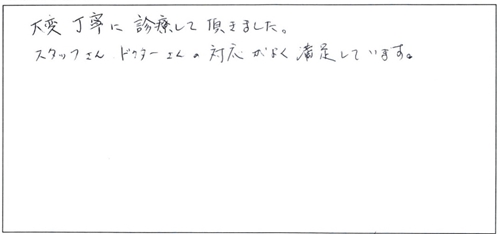 大変丁寧に診療して頂きました。
スタッフさん ドクターさんの対応がよく満足しています。